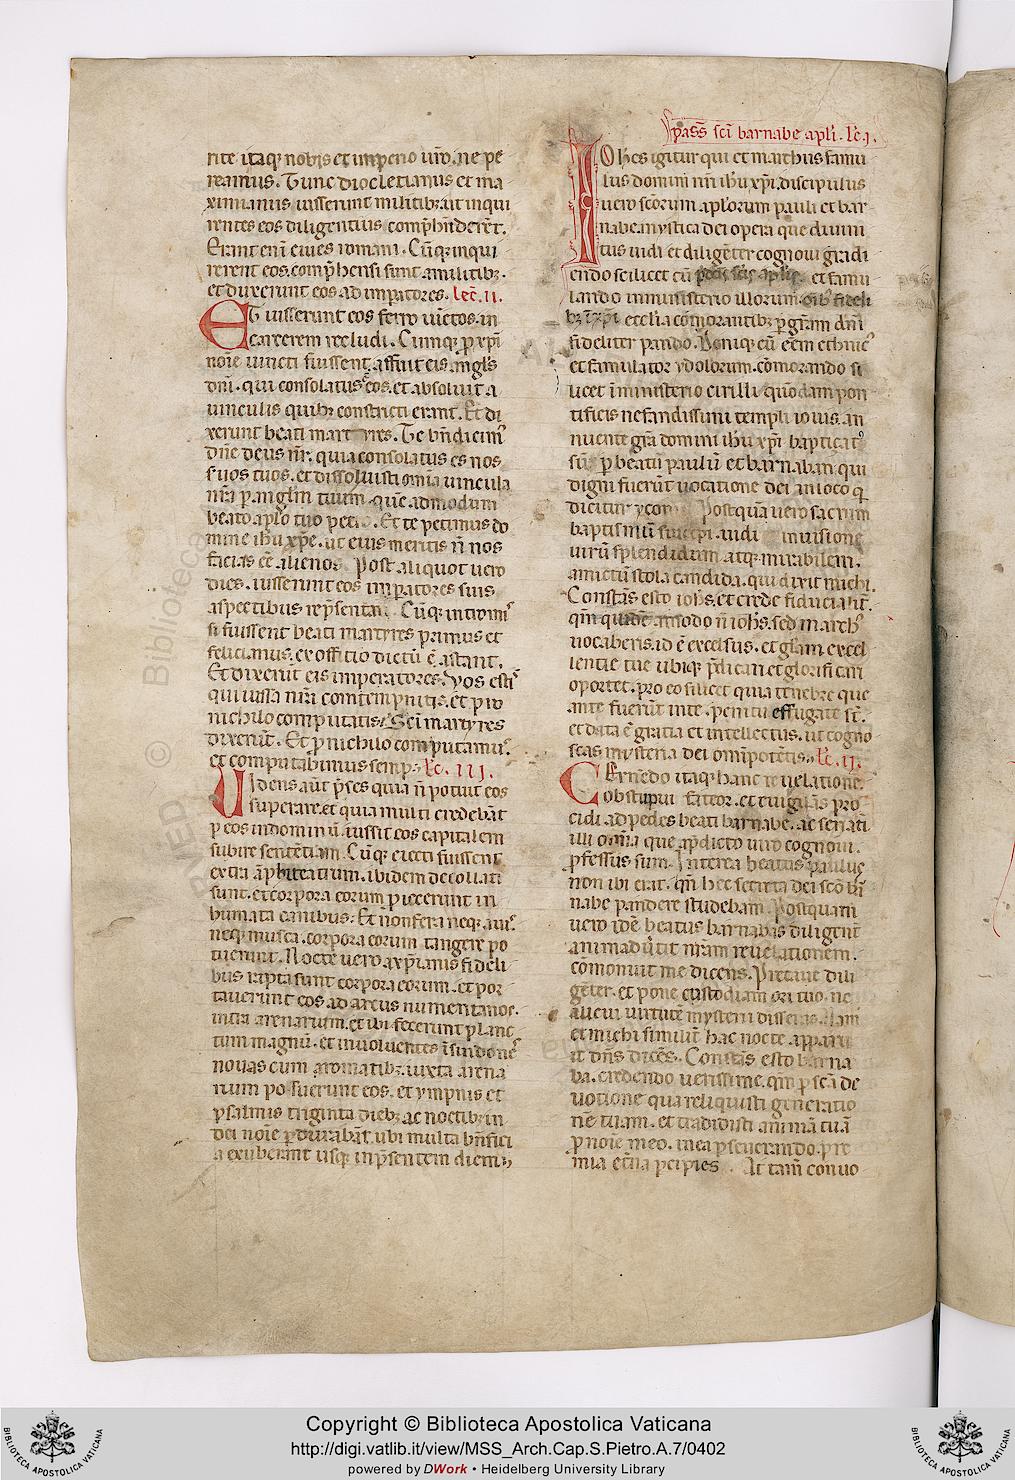 rite itaq; nobis et imperio uṙo. ne pe
reamus. Tunc dioclecianus et ma
ximianus iusserunt militibꝫ ut inqui
rentes eos diligentius comp̄hn̄derēt.
Erant eni ciues romani. Cūq; inqui
rerent eos. comp̄hensi sunt a militibꝫ.
et duxerunt eos ad imp̄atores. Lec̄. II.
Et iusserunt eos ferro uīctos. in
carcerem recludi. Cumq; ꝓ xp̄i
noīe uincti fuissent. affuit eis angl̄s
dnī. qui consolatus ē eos. et absoluit a
uinculis quibꝫ constricti erant. Et di
xerunt beati martyres. Te bn̄dicim᷒
dn̄e deus nr̄. quia consolatus es nos
seruos tuos. et dissoluisti om̄ia uincula
nr̄a p̱ angl̄m tuum. quē admodum
beato ap̄lo tuo petro. Et te petimus do
mine ih̄u xp̄e. ut eius meritis n̄ nos
facias eē alienos. Post aliquot uero
dies. iusserunt eos imp̄atores suis
aspectibus rep̄sentari. Cūq; intromis
si fuissent beati martyres primus et
felicianus. ex officio dictū ē. astant.
Et dixerunt eis imperatores. Vos esti᷒
qui iussa nr̄a comtempnitis. et pro
nichilo computatis. Sc̄i martyres
dixerūt. Et ꝓ nichilo computamu᷒.
et computabimus semp̱. Lc̄. III.
Uidens aūt p̄ses quia n̄ potuit eos
superare. et quia multi credebāt
p̱ eos in dominū. iussit eos capitalem
subire sentētiam. Cūq; eiecti fuissent
extra āphiteatrum. ibidem decollati
sunt. et corpora eorum proiecerunt in
humata canibus. Et n̄ on fera neq; aui᷒.
neq; musca. corpora eorum tangere po
tuerunt. Nocte uero a xp̄ianis fideli
bus rapta sunt corpora eorum. et por
tauerunt eos ad arcus numentanos.
intra arenarum. et ibi fecerunt planc
tum magnū. et inuoluentes ī sindone᷒
nouas cum aromatibꝫ. iuxta arena
rium posuerunt eos. et ympnis et
psalmis triginta diebꝫ ac noctibꝫ in
dei noīe p̱durabāt. ubi multa bn̄fici
a exuberant usq; in p̄sentem diem.
pass̄ sc̄i barnabe apl̄i. Lc̄. I.
Ioh̄es igitur qui et marchus famu
lus domini nr̄i ih̄u xp̄i. discipulus
uero sc̄orum aplorum pauli et bar
nabe. mystica dei opera que diuini
tus uidi et diligēter cognoui gradi
endo scilicet cū p̄dc̄is sc̄is apl̄is. et famu
lando in ministerio illorum. oib᷒ fideli
bꝫ ī xp̄i ecclīa cōmorantibꝫ p̱ gr̄am dnī
fideliter pando. Deniq; cū eēm ethnic᷒
et famulator ydolorum. cōmorando si
licet ī ministerio cirilli quōdam pon
tificis nefandissimi templi iouis. an
nuente gr̄a domini ih̄u xp̄i baptiçat᷒
sū p̱ beatū paulū et barnaban qui
digni fuerūt uocatione dei. in loco q̄
dicitur yconi Postquā uero sacrum
baptismū suscepi. uidi in uisione
uirū splendidum atq; mirabilem.
amictū stola candida. qui dixit michi.
Constās esto ioh̄s. et crede fiducialit̄.
qm̄ quidē amodo n̄ ioh̄s. sed march᷒
uocaberis. id ē excelsus. et gl̄am excel
lentie tue ubiq; p̄dicari et glorificari
oportet. pro eo silicet quia tenebre que
ante fuerūt in te. penitu effugate st̄.
et data ē gratia et intellectus. ut cogno
scas mysteria dei omīpotētis. Lc̄. II.
Cernēdo itaq; hanc reuelationē.
obstupui fateor. et euigilās pro
cidi ad pedes beati barnabe. ac seriati
illi om̄ia que a p̄dicto uiro cognoui.
p̱fessus sum. Interea beatus paulus
non ibi erat. qn̄ hec secreta dei scō bar
nabe pandere studebam. Postquam
uero idē beatus barnabas diligent̄
animaduertit meam reuelationem.
cōmonuit me dicens. Precaue dili
gēter. et pone custodiam ori tuo. ne
alicui uirtutē mysterii disseras. Nam
et michi similit̄ hac nocte apparu
it dn̄s dicēs. Constās esto barna
ba. credendo uerissime. qm̄ p̱ scā de
uotione qua reliquisti generatio
nē tuam. et tradidisti animā tuā
p̱ noīe meo. in ea p̱seuerando. pre
mia et̄na p̱cipies. At tam̄ conuo
Copyright © Biblioteca Apostolica Vaticana
http://digi.vatlib.it/view/MSS_Arch.Cap.S.Pietro.A.7/0402
powered by DWork • Heidelberg University Library
BIBLIOTECA APOSTOLICA VATICANA
BIBLIOTECA APOSTOLICA VATICANA